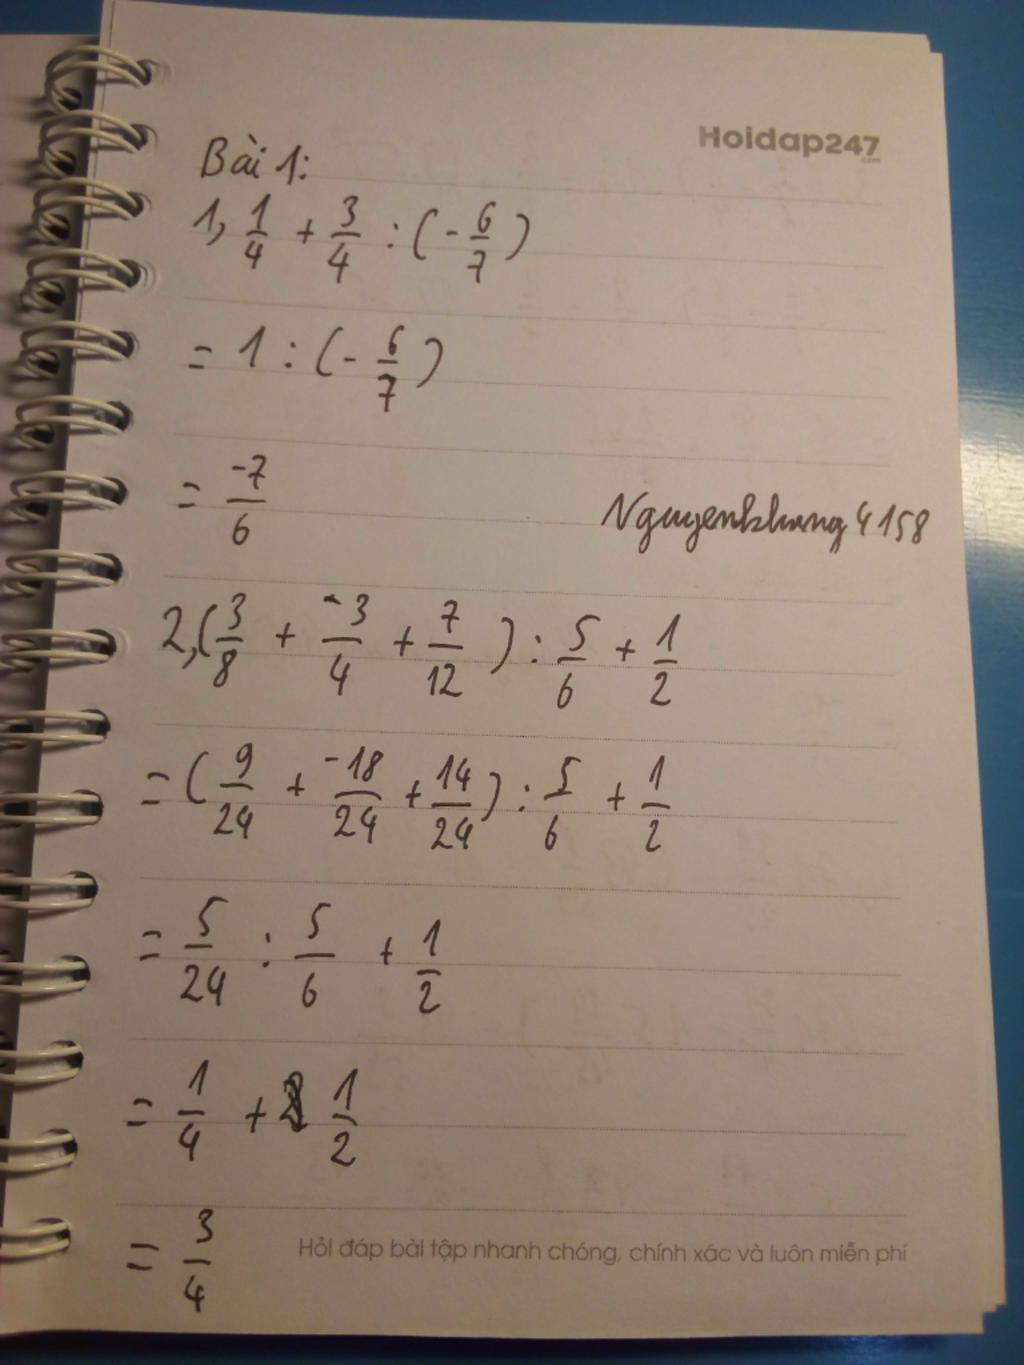 Hoidap247
.com
Bài 1:
1, 1/4 + 3/4 : (- 6/7)
= 1 : (- 6/7)
= -7/6
Nguyenkhang4158
2, (3/8 + -3/4 + 7/12) : 5/6 + 1/2
= (9/24 + -18/24 + 14/24) : 5/6 + 1/2
= 5/24 : 5/6 + 1/2
= 1/4 + 1/2
= 3/4
Hỏi đáp bài tập nhanh chóng, chính xác và luôn miễn phí